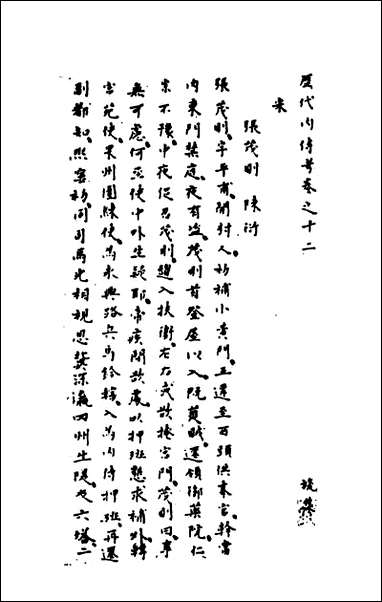 歷代內侍考卷之十二
宋
張茂則 陳衍
張茂則字平甫開封人初補小黃門五遷至西頭供奉官幹當
內東門禁庭夜有盜茂則首登屋以入既獲賊遷領御藥院仁
宗不豫中夜促召茂則趨入扶衛左右或欲掩宮門茂則曰事
無可慮何至使中外生疑耶帝疾間欲處以押班懇求補外轉
宮苑使果州團練使為永興路兵馬鈐轄入為內侍押班再遷
副都知熙寧初同司馬光相視恩冀深瀛四州生隄及六塔二